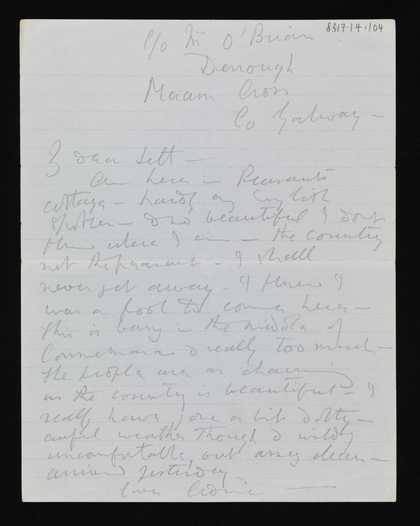 8317.1.4.104
c/o Mr O'Brian
Derrough
Maam Cross
Co Galway –
dear Lett –
Am here in Peasants
cottage – hardly any English
spoken – & so beautiful I don't
know where I am – the country
not the peasants – I shall
never get away – I think I
was a fool to come here –
this is being in the middle of
Connemara & really too much –
the people are as charming
as the country is beautiful – I
really have gone a bit dotty –
awful weather though & wildly
uncomfortable but very clean –
arrived yesterday
love Cedric –